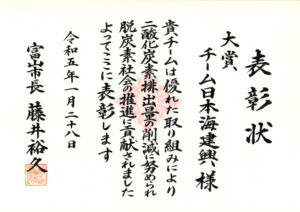 表彰状
大賞
チーム日本海建興 様
貴チームは優れた取り組みにより
二酸化炭素排出量の削減に努められ
脱炭素社会の推進に貢献されました
よってここに表彰します
令和五年一月二十八日
富山市長 藤井裕久